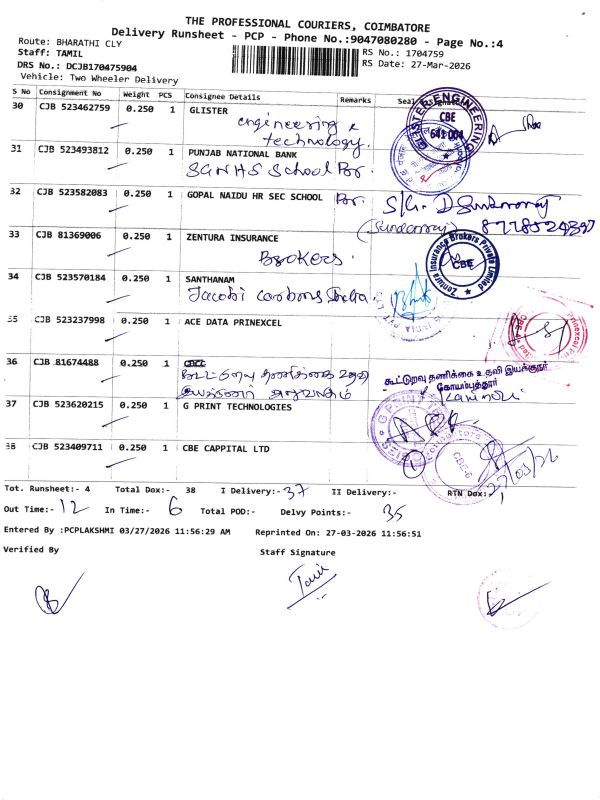 THE PROFESSIONAL COURIERS, COIMBATORE
Delivery Runsheet - PCP - Phone No.:9047080280 - Page No.:4
Route: BHARATHI CLY
RS No.: 1704759
Staff: TAMIL
RS Date: 27-Mar-2026
DRS No.: DCJB170475904
Vehicle: Two Wheeler Delivery
S No Consignment No Weight PCS Consignee Details Remarks Seal
30 CJB 523462759 0.250 1 GLISTER
engineering &
technology.
GLISTER ENGINEERING
CBE
641 004
31 CJB 523493812 0.250 1 PUNJAB NATIONAL BANK
SGNHS School Br.
32 CJB 523582083 0.250 1 GOPAL NAIDU HR SEC SCHOOL Br.
33 CJB 81369006 0.250 1 ZENTURA INSURANCE
Brokers.
Zentura Insurance Brokers Private Limited
CBE
34 CJB 523570184 0.250 1 SANTHANAM
Jacobi carbons India.
35 CJB 523237998 0.250 1 ACE DATA PRINEXCEL
36 CJB 81674488 0.250 1
கூட்டுறவு தணிக்கை உதவி இயக்குநர்
கோயம்புத்தூர்
37 CJB 523620215 0.250 1 G PRINT TECHNOLOGIES
38 CJB 523409711 0.250 1 CBE CAPPITAL LTD
CBE-6
27/03/26
Tot. Runsheet:- 4 Total Dox:- 38 I Delivery:- 37 II Delivery:- RTN Dox:- 1
Out Time:- 12 In Time:- 6 Total POD:- Delvy Points:- 35
Entered By :PCPLAKSHMI 03/27/2026 11:56:29 AM Reprinted On: 27-03-2026 11:56:51
Verified By Staff Signature